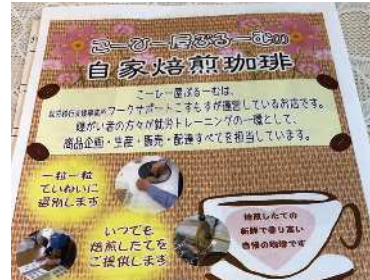 こーひー屋ぶるーむの
自家焙煎珈琲
こーひー屋ぶるーむは、
就労移行支援事業所ワークサポートこすもすが運営しているお店です。
障がい者の方々が就労トレーニングの一環として、
商品企画・生産・販売・配達すべてを担当しています。
一粒一粒
ていねいに
選別します
いつでも
焙煎したてを
ご提供します
焙煎したての
新鮮で香り高い
自慢の珈琲です